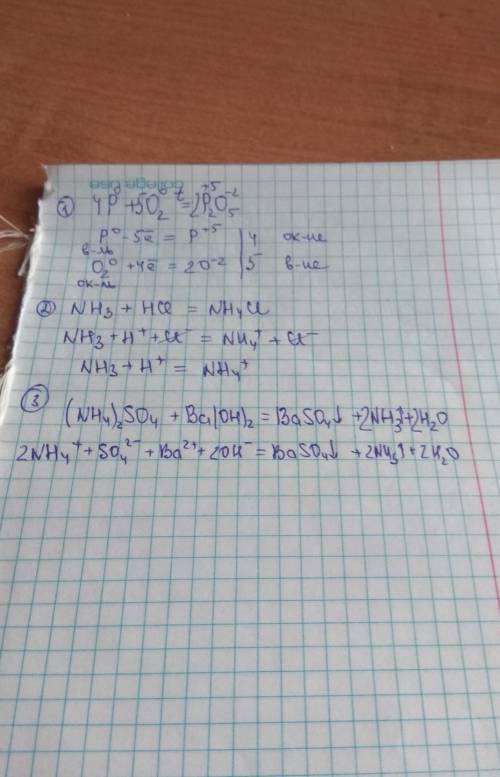 college use
① 4P⁰ + 5O₂⁰ t= 2P₂⁺⁵O₅⁻²
P⁰ - 5ē = P⁺⁵ | 4 ок-ие
в-ль
O₂⁰ + 4ē = 2O⁻² | 5 в-ие
ок-ль
② NH₃ + HCl = NH₄Cl
NH₃ + H⁺ + Cl⁻ = NH₄⁺ + Cl⁻
NH₃ + H⁺ = NH₄⁺
③
(NH₄)₂SO₄ + Ba(OH)₂ = BaSO₄↓ + 2NH₃↑ + 2H₂O
2NH₄⁺ + SO₄²⁻ + Ba²⁺ + 2OH⁻ = BaSO₄↓ + 2NH₃↑ + 2H₂O